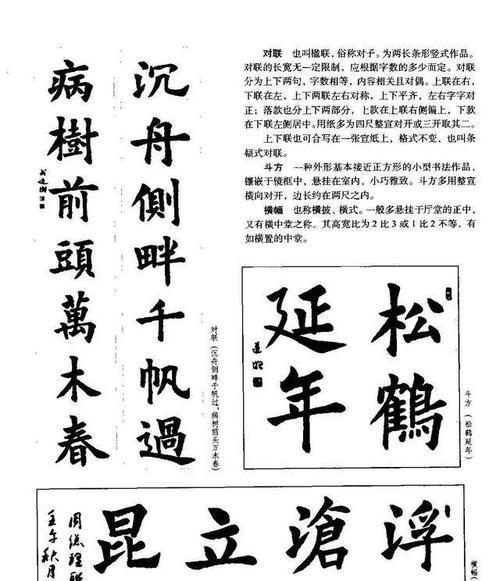 沉舟側畔千帆過
病樹前頭萬木春
对联(沉舟侧畔千帆过,病树前头万木春)
对联 也叫楹联,俗称对子。为两长条形竖式作品。
对联的长宽无一定限制,应根据字数的多少而定。对联
分为上下两句,字数相等,内容相关且对偶。上联在右,
下联在左,上下两联左右对称,上下平齐,左右字字对
正;落款也分上下两部分,上款在上联右侧偏上,下款
在下联左侧居中。用纸多为四尺整宣对开或三开取其二。
上下联也可合写在一张宣纸上,格式不变,也叫条
幅式对联。
斗方 一种外形基本接近正方形的小型书法作品,
镶嵌于镜框中,悬挂在室内,小巧雅致。斗方多用整宣
横向对开,边长约在两尺之内。
横幅 也称横披、横式。一般多悬挂于厅堂的正中,
又有横中堂之称。其高宽比为2比3或1比2不等,有
如横置的中堂。
松鶴
延年
斗方(松鹤延年)
浮滄立昆
壬午秋月
横幅